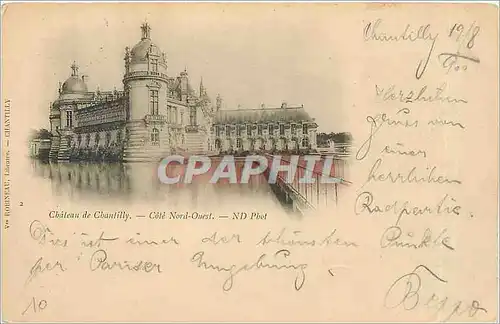 Chantilly 19/8
900
Herzlichen
Gruss von
einer
herrlichen
Radpartie.
CPARAMA
Vve ROBINEAU, Libraire. — CHANTILLY
2
Château de Chantilly. — Côté Nord-Ouest. — ND Phot
Dies ist einer der schönsten Punkte
der Pariser Umgebung.
Beppo
10